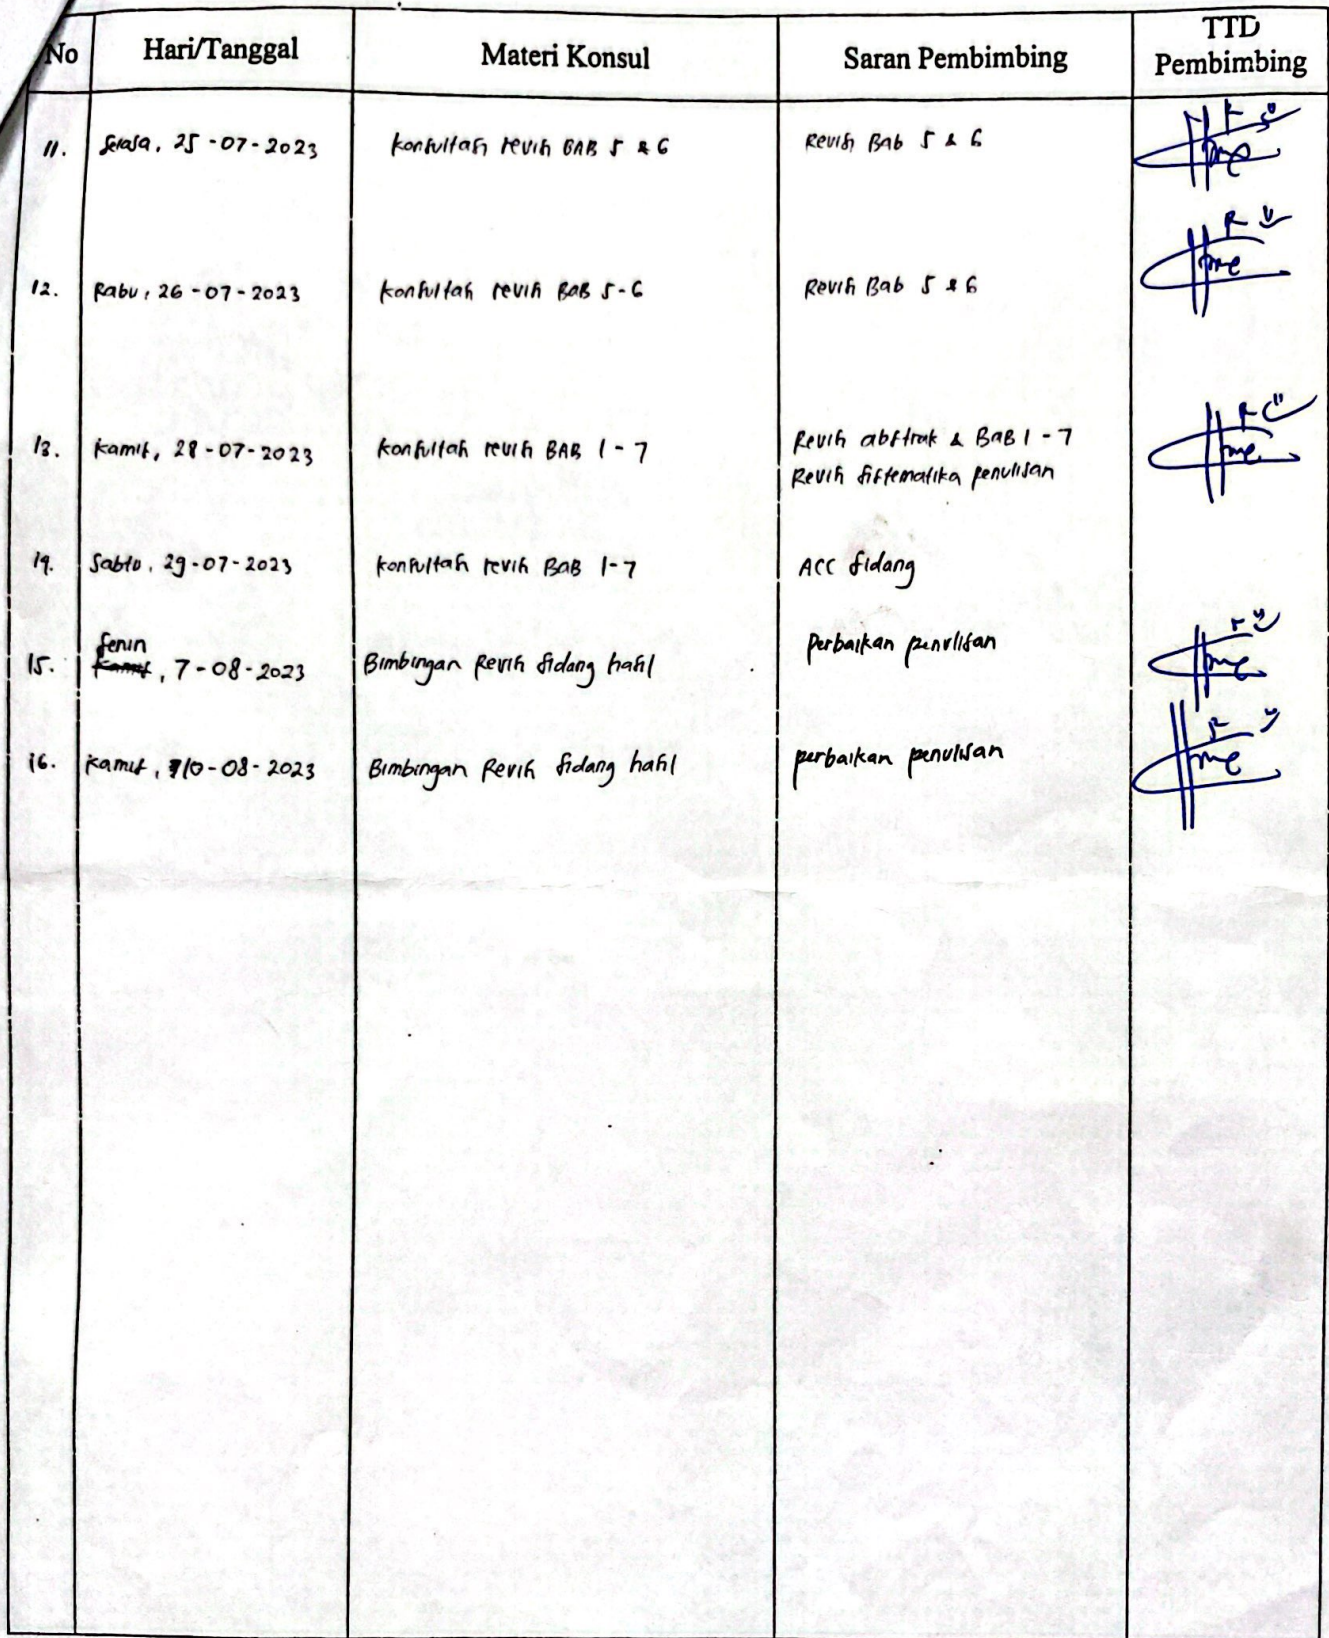 No Hari/Tanggal Materi Konsul Saran Pembimbing TTD Pembimbing
11. Selasa, 25-07-2023 konsultasi revisi BAB 5 & 6 Revisi Bab 5 & 6
12. Rabu, 26-07-2023 konsultasi revisi BAB 5-6 Revisi Bab 5 & 6
13. Kamis, 28-07-2023 konsultasi revisi BAB 1-7 Revisi abstrak & BAB 1-7
Revisi sistematika penulisan
14. Sabtu, 29-07-2023 konsultasi revisi BAB 1-7 ACC sidang
15. Senin, 7-08-2023 Bimbingan Revisi sidang hasil Perbaikan penulisan
16. Kamis, 10-08-2023 Bimbingan Revisi sidang hasil perbaikan penulisan